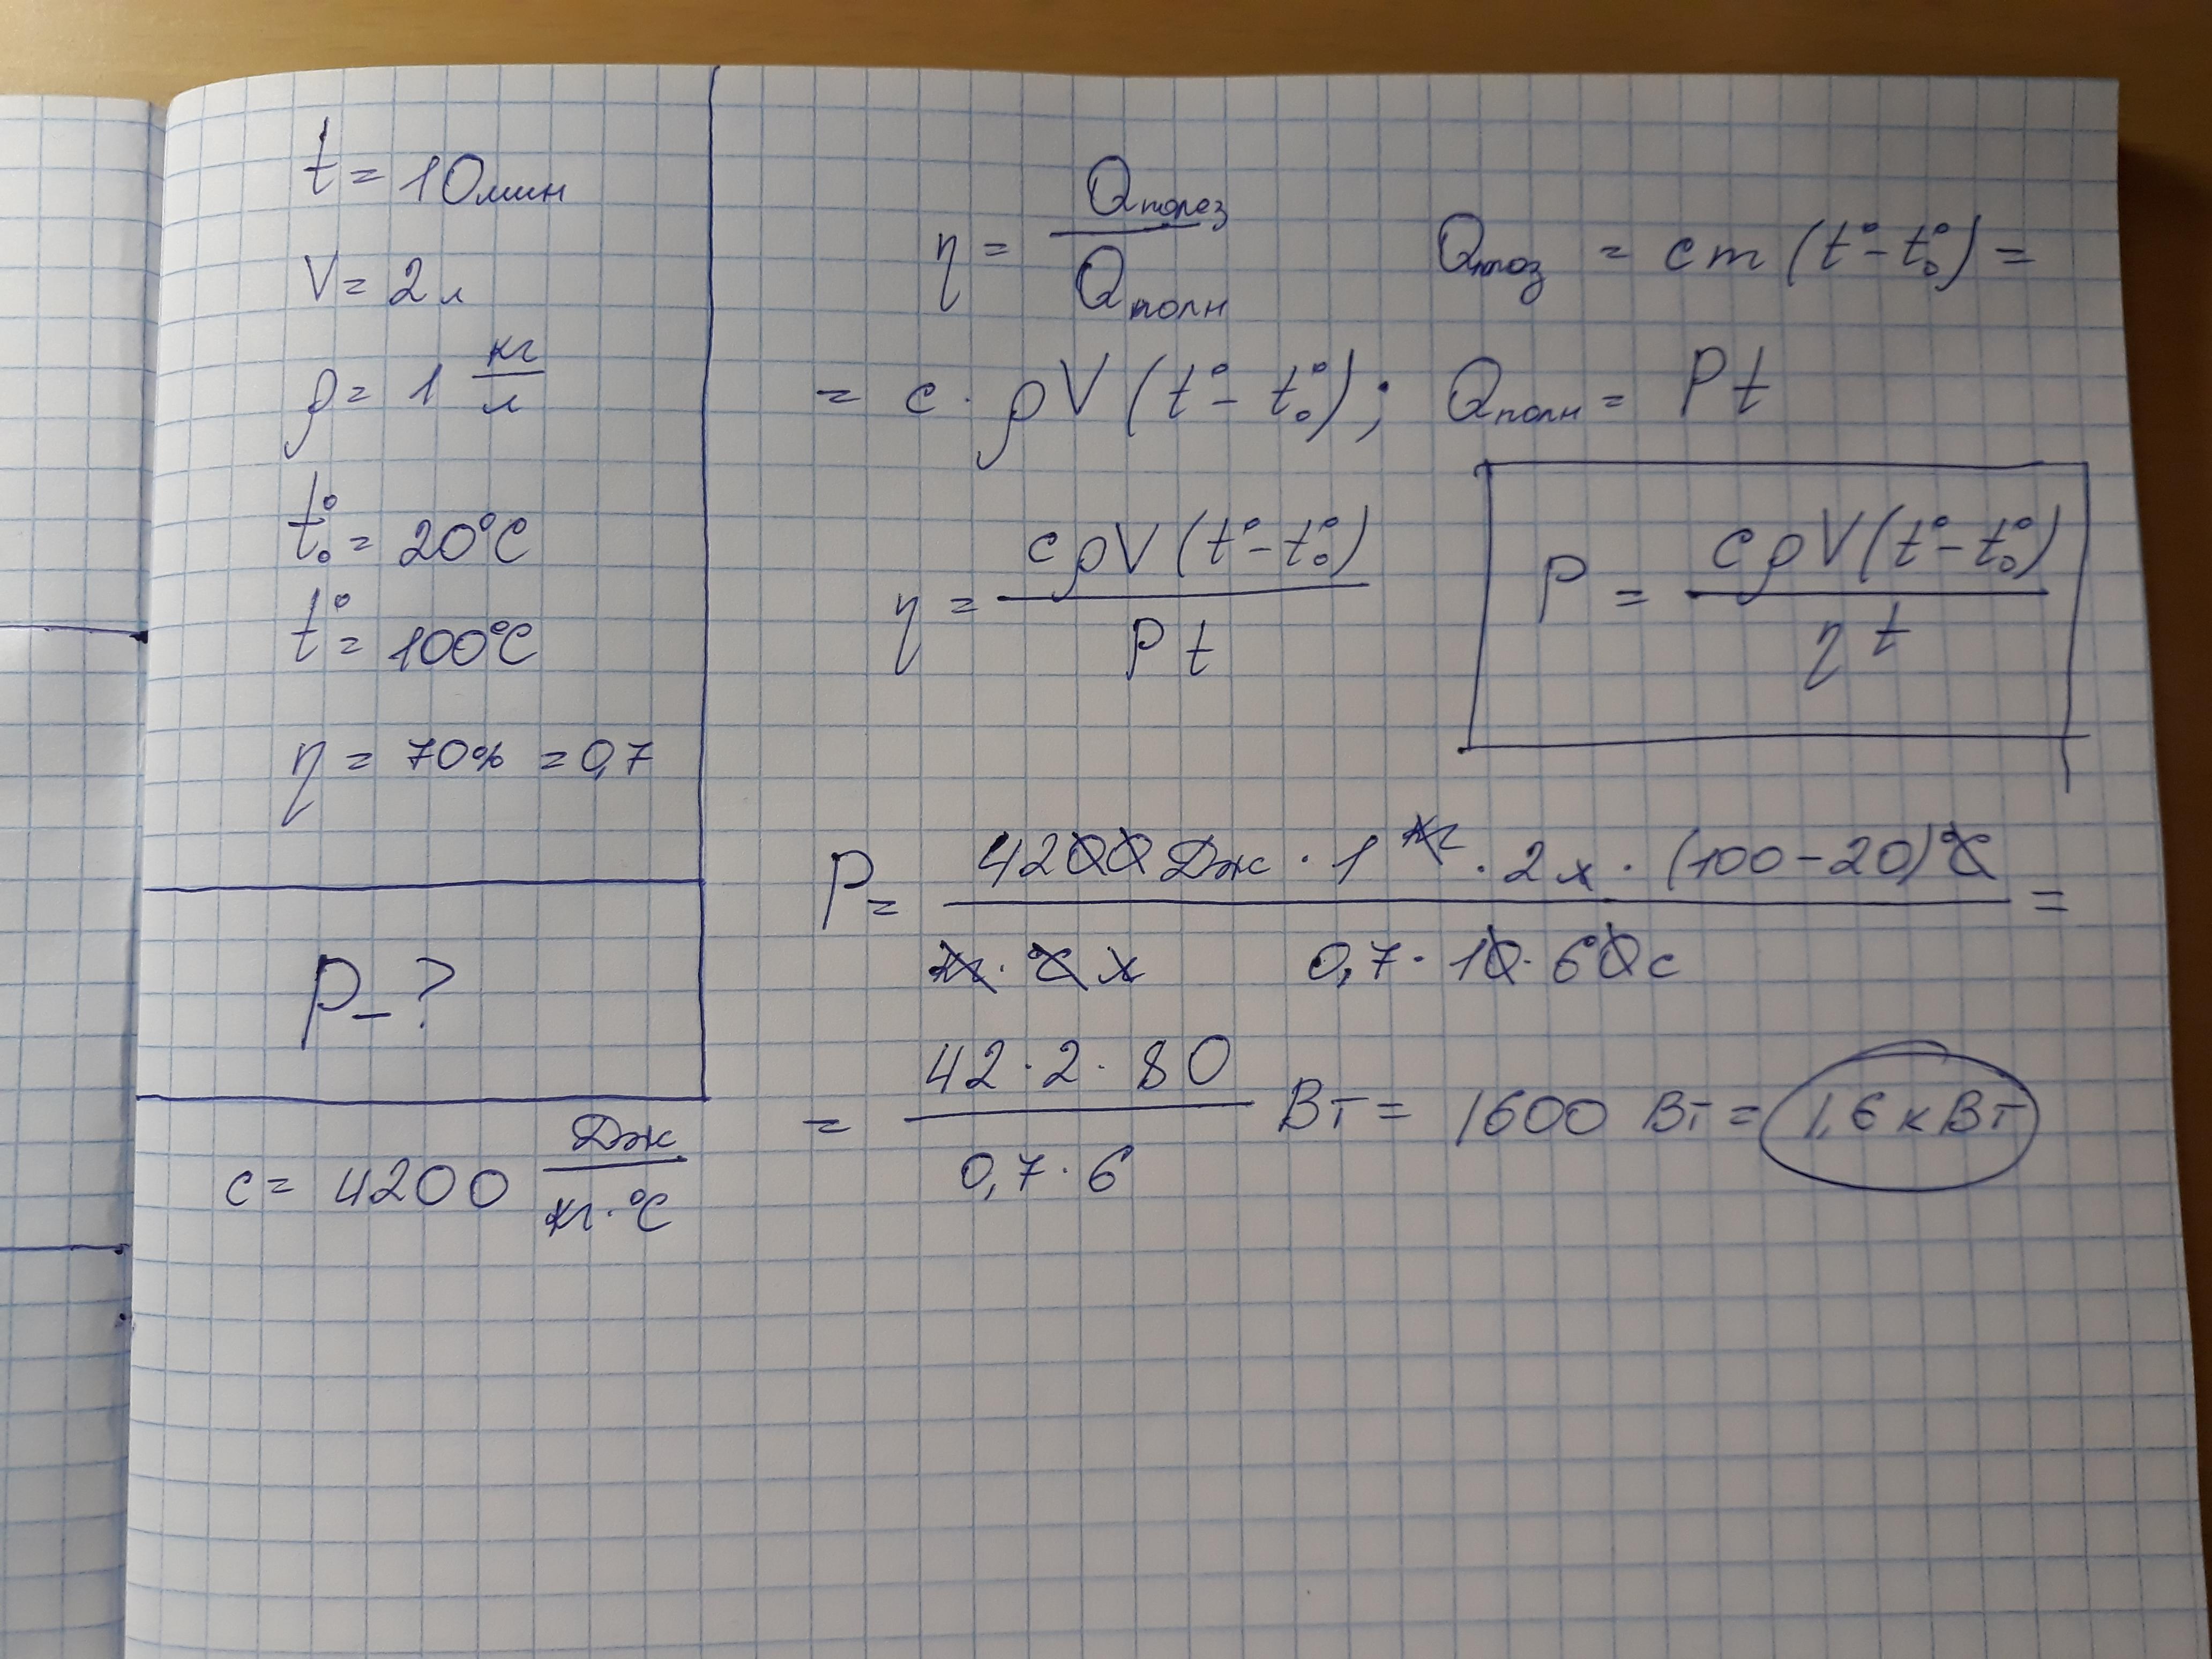 t = 10 мин
V = 2 л
ρ = 1 кг/л
t°₀ = 20°C
t° = 100°C
η = 70% = 0,7
P - ?
c = 4200 Дж/(кг·°C)
η = Qполез/Qполн
Qпоз = cm(t° - t°₀) =
= c · ρV(t° - t°₀); Qполн = Pt
η = cρV(t° - t°₀)/(Pt)
P = cρV(t° - t°₀)/(ηt)
P = (4200 Дж · 1 кг · 2 л · (100 - 20)°C)/(кг · °C л 0,7 · 10 · 60 с) =
= (42 · 2 · 80)/(0,7 · 6) Вт = 1600 Вт = 1,6 кВт